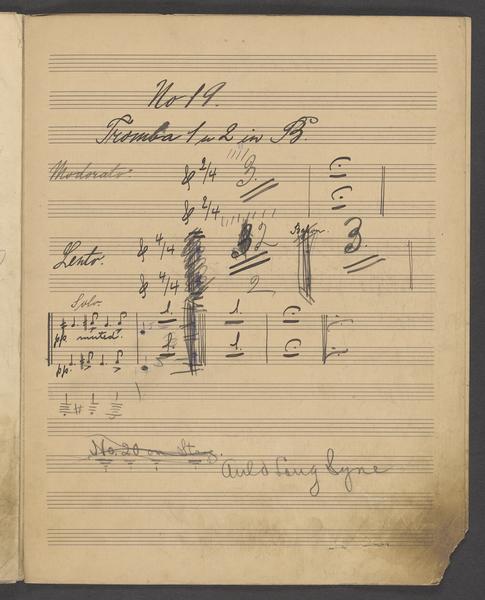 No 19.
Tromba 1 u 2 in B.
Moderato. 2/4 3.
2/4
Lento. 4/4 2 3.
4/4 2
Solo.
1. 1.
pp. muted.
1. 1.
pp.
No. 20 on Stag.
Auld Lang Syne